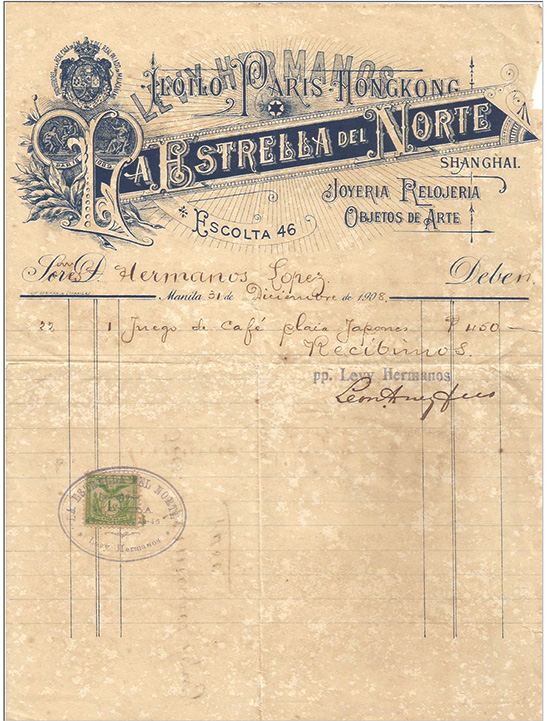 LEVY HERMANOS
ILOILO PARIS-HONGKONG
LA ESTRELLA DEL NORTE
SHANGHAI.
JOYERIA RELOJERIA
OBJETOS DE ARTE
ESCOLTA 46
Hermanos López Deben
Manila 31 de Diciembre de 1908.
22 1 Juego de Café plata Japones ₱ 450 —
Recibimos.
pp. Levy Hermanos
LA ESTRELLA DEL NORTE
Levy Hermanos